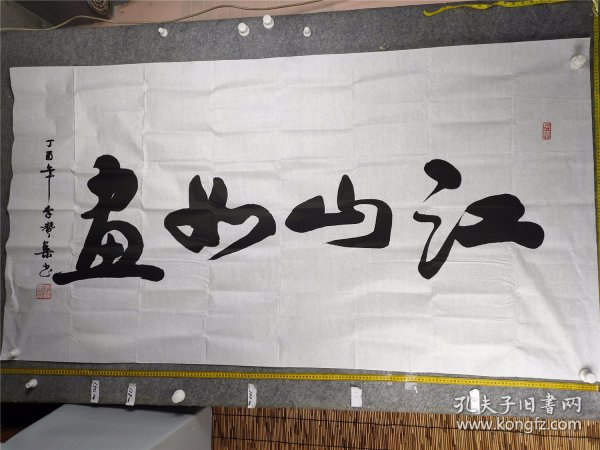 江山如画
丁酉年
孔夫子旧书网
www.kongfz.com